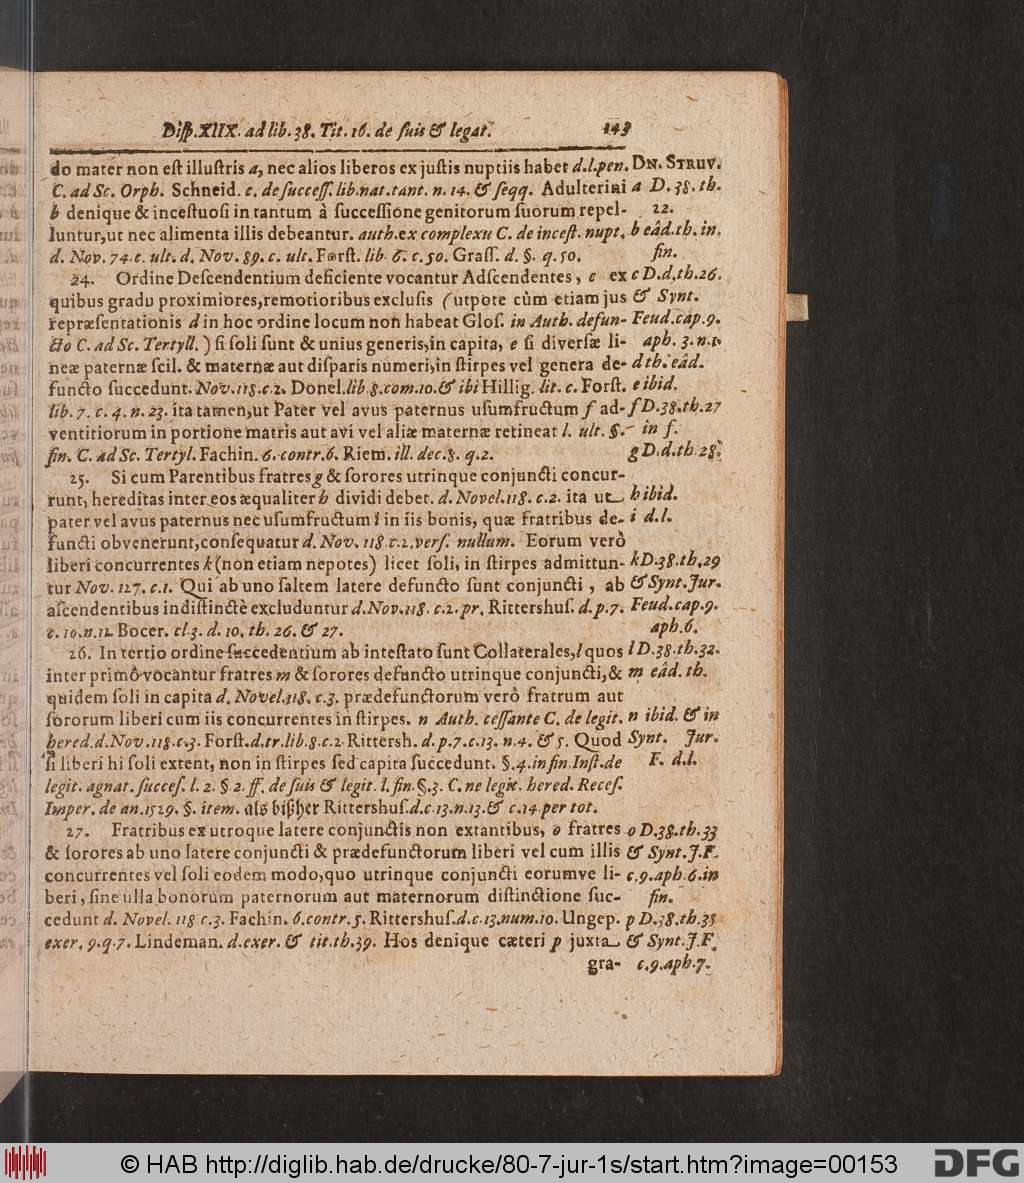 Diſp. XIIX. ad lib. 38. Tit. 16. de ſuis & legat. 143
do mater non eſt illuſtris a, nec alios liberos ex juſtis nuptiis habet d.l.pen. DN. STRUV.
C. ad Sc. Orph. Schneid. c. de ſucceſſ. lib. nat. tant. n. 14. & ſeqq. Adulterini a D. 38. th.
b denique & inceſtuoſi in tantum à ſucceſſione genitorum ſuorum repel- 22.
luntur, ut nec alimenta illis debeantur. auth. ex complexu C. de inceſt. nupt. b eâd. th. in.
d. Nov. 74. c. ult. d. Nov. 89. c. ult. Forſt. lib. 6. c. 50. Graſſ. d. §. q. 50. fin.
24. Ordine Deſcendentium deficiente vocantur Adſcendentes, c ex c D.d.th.26.
quibus gradu proximiores, remotioribus excluſis (utpote cùm etiam jus & Synt.
repræſentationis d in hoc ordine locum non habeat Gloſ. in Auth. defun- Feud.cap.9.
cto C. ad Sc. Tertyll.) ſi ſoli ſunt & unius generis, in capita, e ſi diverſæ li- aph. 3. n.1.
neæ paternæ ſcil. & maternæ aut diſparis numeri, in ſtirpes vel genera de- d th. eâd.
functo ſuccedunt. Nov. 118. c. 2. Donel. lib. 8. com. 10. & ibi Hillig. lit. c. Forſt. e ibid.
lib. 7. c. 4. n. 23. ita tamen, ut Pater vel avus paternus uſumfructum f ad- f D.38.th.27
ventitiorum in portione matris aut avi vel aliæ maternæ retineat l. ult. §. in f.
fin. C. ad Sc. Tertyl. Fachin. 6. contr. 6. Riem. ill. dec. 8. q. 2. g D.d.th.28.
25. Si cum Parentibus fratres g & ſorores utrinque conjuncti concur-
runt, hereditas inter eos æqualiter h dividi debet. d. Novel. 118. c. 2. ita ut h ibid.
pater vel avus paternus nec uſumfructum i in iis bonis, quæ fratribus de- i d.l.
functi obvenerunt, conſequatur d. Nov. 118. c. 2. verſ. nullum. Eorum verò
liberi concurrentes k (non etiam nepotes) licet ſoli, in ſtirpes admittun- k D.38.th.29
tur Nov. 127. c. 1. Qui ab uno ſaltem latere defuncto ſunt conjuncti, ab & Synt. Jur.
aſcendentibus indiſtinctè excluduntur d. Nov. 118. c. 2. pr. Rittershuſ. d. p. 7. Feud.cap.9.
c. 10. n. 12. Bocer. cl. 3. d. 10. th. 26. & 27. aph.6.
26. In tertio ordine ſuccedentium ab inteſtato ſunt Collaterales, l quos l D.38.th.32.
inter primò vocantur fratres m & ſorores defuncto utrinque conjuncti, & m eâd. th.
quidem ſoli in capita d. Novel. 118. c. 3. prædefunctorum verò fratrum aut
ſororum liberi cum iis concurrentes in ſtirpes. n Auth. ceſſante C. de legit. n ibid. & in
hered. d. Nov. 118. c. 3. Forſt. d. tr. lib. 8. c. 2. Rittersh. d. p. 7. c. 13. n. 4. & 5. Quod Synt. Jur.
ſi liberi hi ſoli extent, non in ſtirpes ſed capita ſuccedunt. §. 4. in fin. Inſt. de F. d.l.
legit. agnat. ſucceſ. l. 2. § 2. ff. de ſuis & legit. l. fin. §. 3. C. ne legit. hered. Receſ.
Imper. de an. 1529. §. item. als bißher Rittershuſ. d. c. 13. n. 13. & c. 14. per tot.
27. Fratribus ex utroque latere conjunctis non extantibus, o fratres o D.38.th.33
& ſorores ab uno latere conjuncti & prædefunctorum liberi vel cum illis & Synt. J.F.
concurrentes vel ſoli eodem modo, quo utrinque conjuncti eorumve li- c.9.aph.6.in
beri, ſine ulla bonorum paternorum aut maternorum diſtinctione ſuc- fin.
cedunt d. Novel. 118 c. 3. Fachin. 6. contr. 5. Rittershuſ. d. c. 13. num. 10. Ungep. p D.38.th.35
exer. 9. q. 7. Lindeman. d. exer. & tit. th. 39. Hos denique cæteri p juxta & Synt. J.F.
gra- c.9.aph.7.
© HAB http://diglib.hab.de/drucke/80-7-jur-1s/start.htm?image=00153 DFG